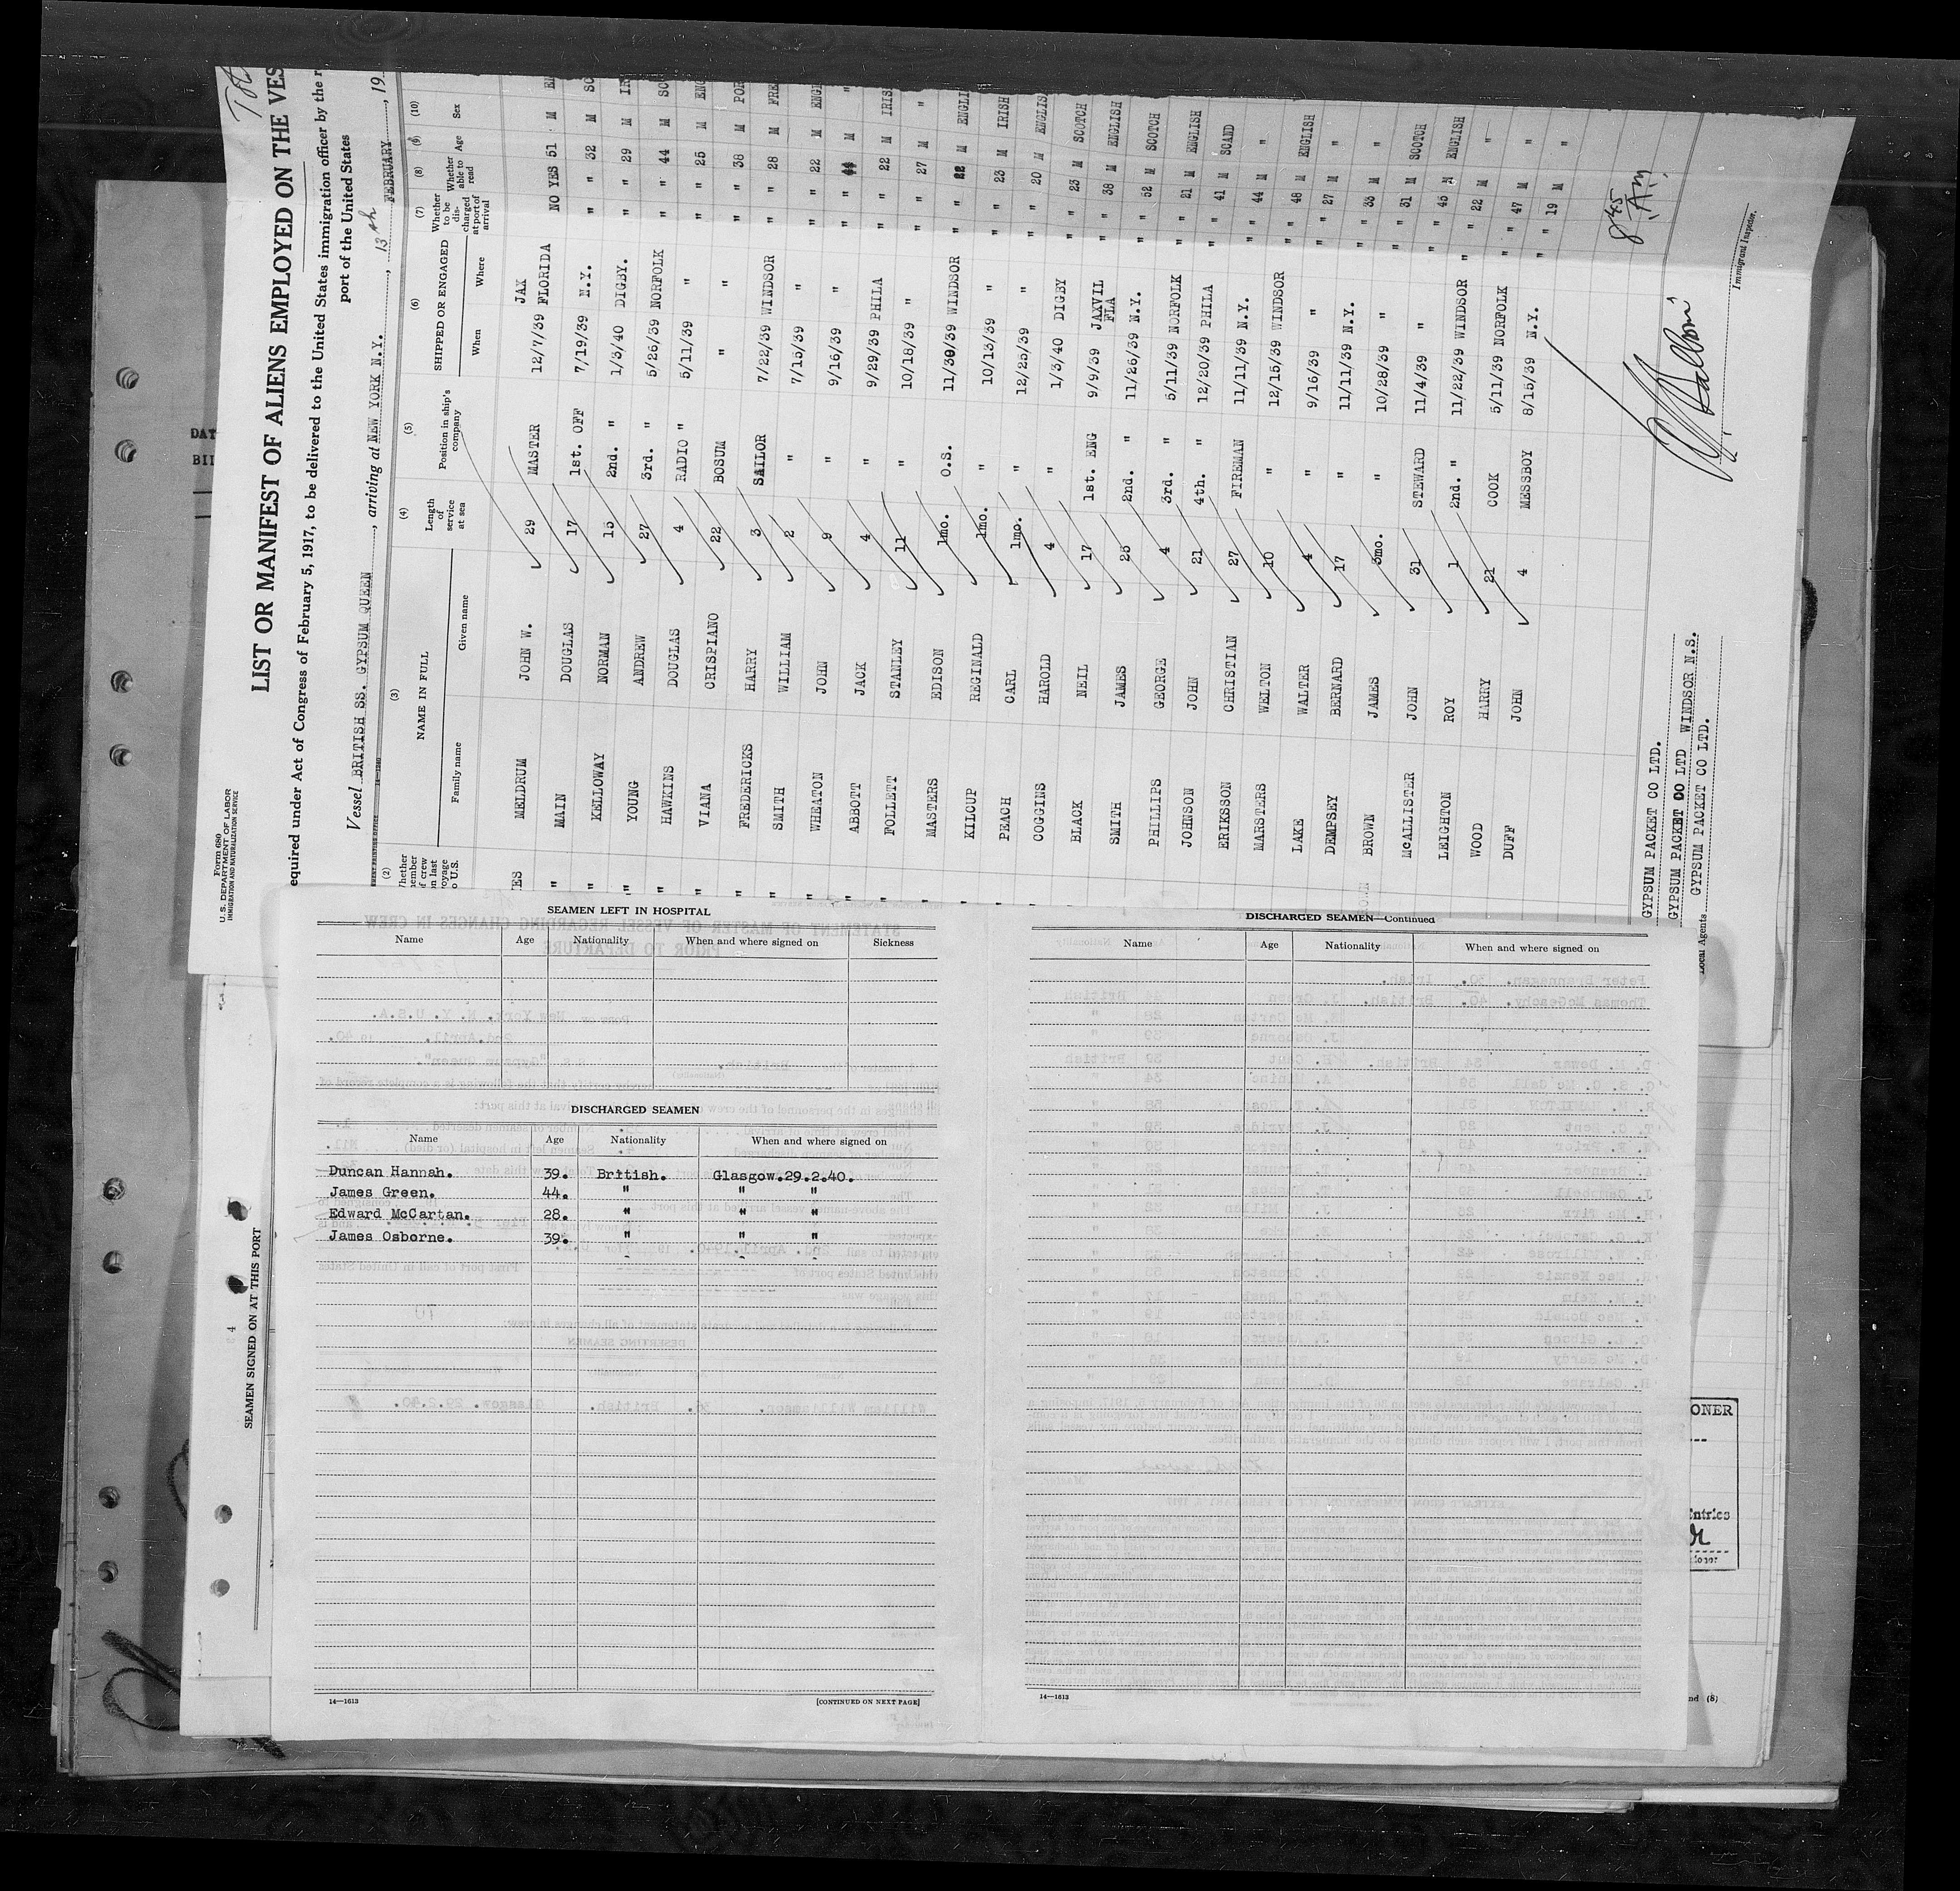 Form 680
U. S. DEPARTMENT OF LABOR
IMMIGRATION AND NATURALIZATION SERVICE
LIST OR MANIFEST OF ALIENS EMPLOYED ON THE VES
equired under Act of Congress of February 5, 1917, to be delivered to the United States immigration officer by the r
port of the United States
Vessel BRITISH SS. GYPSUM QUEEN, arriving at NEW YORK N.Y., 13th FEBRUARY, 19
(2) (3) (4) (5) (6) (7) (8) (9) (10)
NAME IN FULL
Family name Given name
Length of service at sea
Position in ship's company
SHIPPED OR ENGAGED
When Where
Whether to be discharged at port of arrival
Whether able to read
Age Sex
YES MELDRUM JOHN W. 29 MASTER 12/7/39 JAX FLORIDA NO YES 51 M
" MAIN DOUGLAS 17 1st. OFF 7/19/39 N.Y. " " 32 M
" KELLOWAY NORMAN 15 2nd. " 1/3/40 DIGBY. " " 29 M
" YOUNG ANDREW 27 3rd. " 5/26/39 NORFOLK " " 44 M
" HAWKINS DOUGLAS 4 RADIO " 5/11/39 " " " 25 M
" VIANA CRISPIANO 22 BOSUM " " " " 38 M
" FREDERICKS HARRY 3 SAILOR 7/22/39 WINDSOR " " 28 M
" SMITH WILLIAM 2 " 7/15/39 " " " 22 M
" WHEATON JOHN 9 " 9/16/39 " " " 44 M "
" ABBOTT JACK 4 " 9/29/39 PHILA " " 22 M IRIS
" FOLLETT STANLEY 11 " 10/18/39 " " " 27 M "
" MASTERS EDISON 1mo. O.S. 11/30/39 WINDSOR " " 22 M ENGLI
" KILCUP REGINALD 1mo. " 10/13/39 " " " 23 M IRISH
" PEACH CARL 1mo. " 12/25/39 " " " 20 M ENGLIS
" COGGINS HAROLD 4 " 1/3/40 DIGBY " " 23 M SCOTCH
BLACK NEIL 17 1st. ENG 9/9/39 JAXVIL FLA " " 38 M ENGLISH
SMITH JAMES 25 2nd. " 11/26/39 N.Y. " " 52 M SCOTCH
PHILLIPS GEORGE 4 3rd. " 5/11/39 NORFOLK " " 21 M ENGLISH
JOHNSON JOHN 21 4th. " 12/20/39 PHILA " " 41 M SCAND
ERIKSSON CHRISTIAN 27 FIREMAN 11/11/39 N.Y. " " 44 M "
MARSTERS WELTON 10 " 12/15/39 WINDSOR " " 48 M ENGLISH
LAKE WALTER 4 " 9/16/39 " " " 27 M "
DEMPSEY BERNARD 17 " 11/11/39 N.Y. " " 33 M "
BROWN JAMES 3mo. " 10/28/39 " " " 31 M SCOTCH
McALLISTER JOHN 31 STEWARD 11/4/39 " " " 45 M ENGLISH
LEIGHTON ROY 1 2nd. " 11/22/39 WINDSOR " " 22 M "
WOOD HARRY 21 COOK 5/11/39 NORFOLK " " 47 M "
DUFF JOHN 4 MESSBOY 8/15/39 N.Y. " " 19 M "
845 AM
GYPSUM PACKET CO LTD.
GYPSUM PACKET CO LTD WINDSOR N.S.
Local Agents GYPSUM PACKET CO LTD.
Immigrant Inspector.
SEAMEN LEFT IN HOSPITAL
Name Age Nationality When and where signed on Sickness
DISCHARGED SEAMEN
Name Age Nationality When and where signed on
Duncan Hannah. 39. British. Glasgow.29.2.40.
James Green. 44. " " "
Edward McCartan. 28. " " "
James Osborne. 39. " " "
14—1613 [CONTINUED ON NEXT PAGE]
DISCHARGED SEAMEN—Continued
Name Age Nationality When and where signed on
14—1613
SEAMEN SIGNED ON AT THIS PORT
DAT
BIL
ONER
Entries
nd (8)